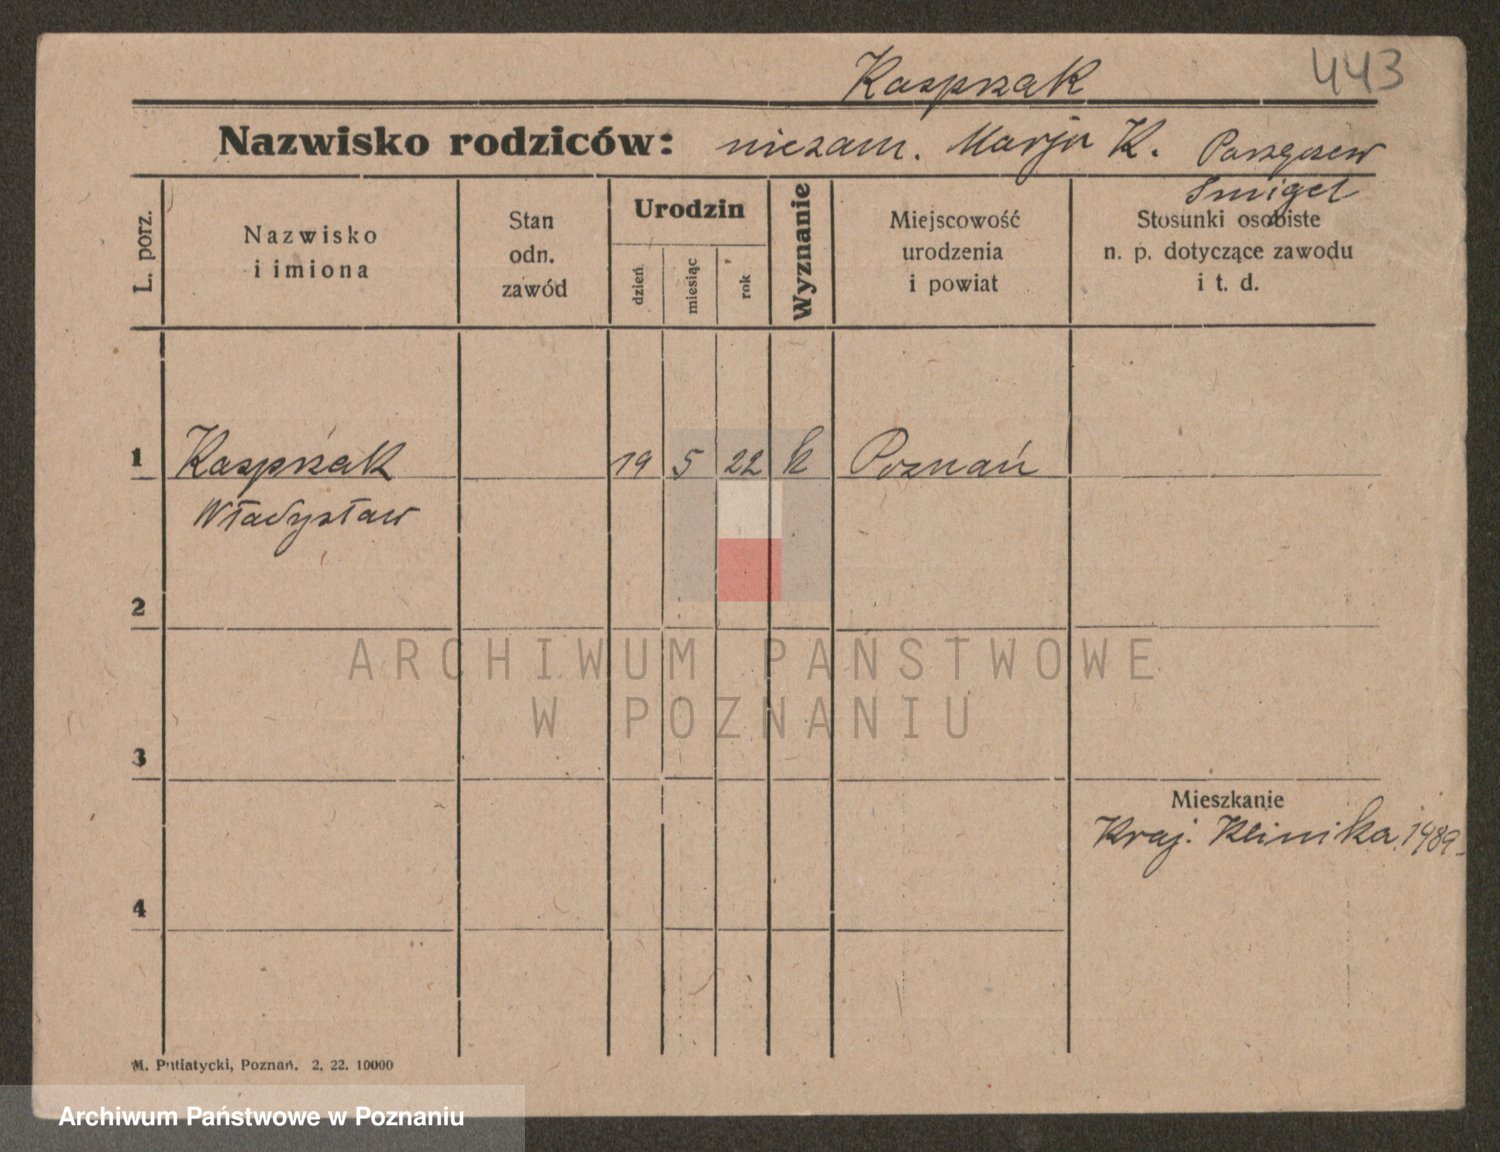 Kasprzak
443
Nazwisko rodziców: niezam. Marja K.
Smigel
L. porz.
Nazwisko
i imiona
Stan
odn.
zawód
Urodzin
dzień
miesiąc
rok
Wyznanie
Miejscowość
urodzenia
i powiat
Stosunki osobiste
n. p. dotyczące zawodu
i t. d.
1 Kasprzak 19 5 22 k Poznań
Władysław
2
3
4
Mieszkanie
Kraj. Klinika 1489
M. Putiatycki, Poznań. 2, 22. 10000
ARCHIWUM PAŃSTWOWE
W POZNANIU
Archiwum Państwowe w Poznaniu